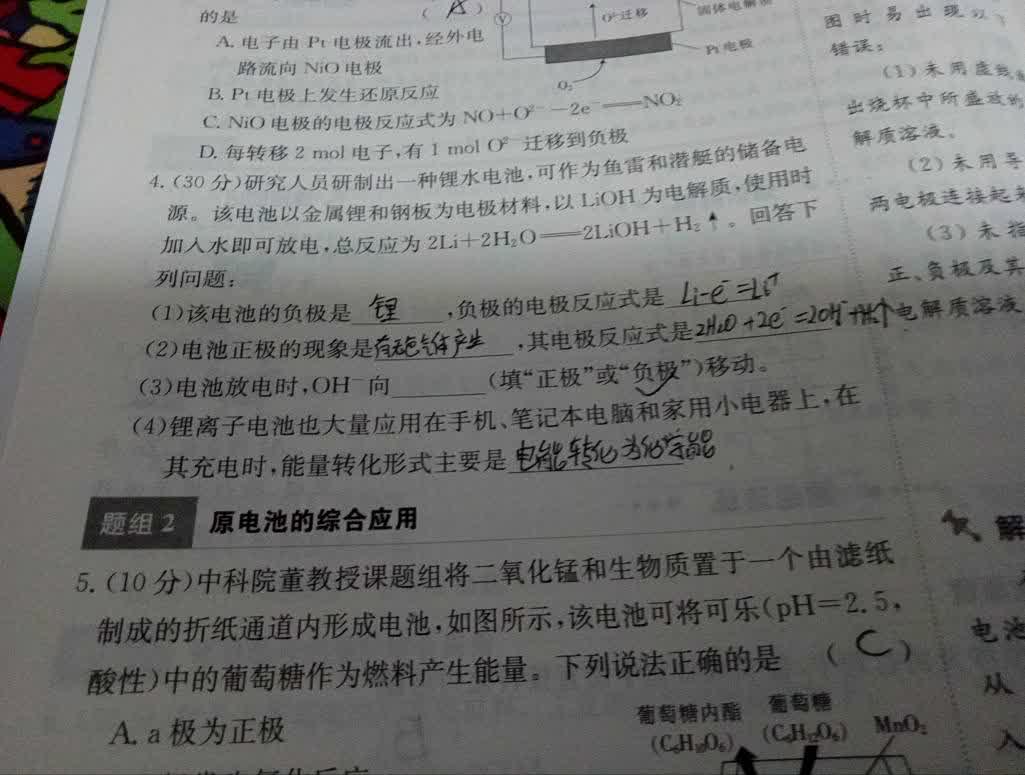 的是 ( A )
A. 电子由 Pt 电极流出,经外电
路流向 NiO 电极
B. Pt 电极上发生还原反应
C. NiO 电极的电极反应式为 NO+O²⁻−2e⁻══NO₂
D. 每转移 2 mol 电子,有 1 mol O²⁻ 迁移到负极
V
O²⁻迁移
固体电解质
Pt 电极
O₂
4. (30 分)研究人员研制出一种锂水电池,可作为鱼雷和潜艇的储备电
源。该电池以金属锂和钢板为电极材料,以 LiOH 为电解质,使用时
加入水即可放电,总反应为 2Li+2H₂O══2LiOH+H₂↑。回答下
列问题:
(1)该电池的负极是 锂 ,负极的电极反应式是 Li-e⁻=Li⁺
(2)电池正极的现象是有无色气体产生,其电极反应式是2H₂O+2e⁻=2OH⁻+H₂↑
(3)电池放电时,OH⁻向______(填“正极”或“负极”)移动。
(4)锂离子电池也大量应用在手机、笔记本电脑和家用小电器上,在
其充电时,能量转化形式主要是 电能转化为化学能
题组 2 原电池的综合应用
5. (10 分)中科院董教授课题组将二氧化锰和生物质置于一个由滤纸
制成的折纸通道内形成电池,如图所示,该电池可将可乐(pH=2.5,
酸性)中的葡萄糖作为燃料产生能量。下列说法正确的是 ( C )
A. a 极为正极
葡萄糖内酯
(C₆H₁₀O₆)
葡萄糖
(C₆H₁₂O₆)
MnO₂
图时易出现以下
错误:
(1)未用虚线
出烧杯中所盛放的
解质溶液。
(2)未用导
两电极连接起来
(3)未指
正、负极及其
电解质溶液
解
电池
从
入